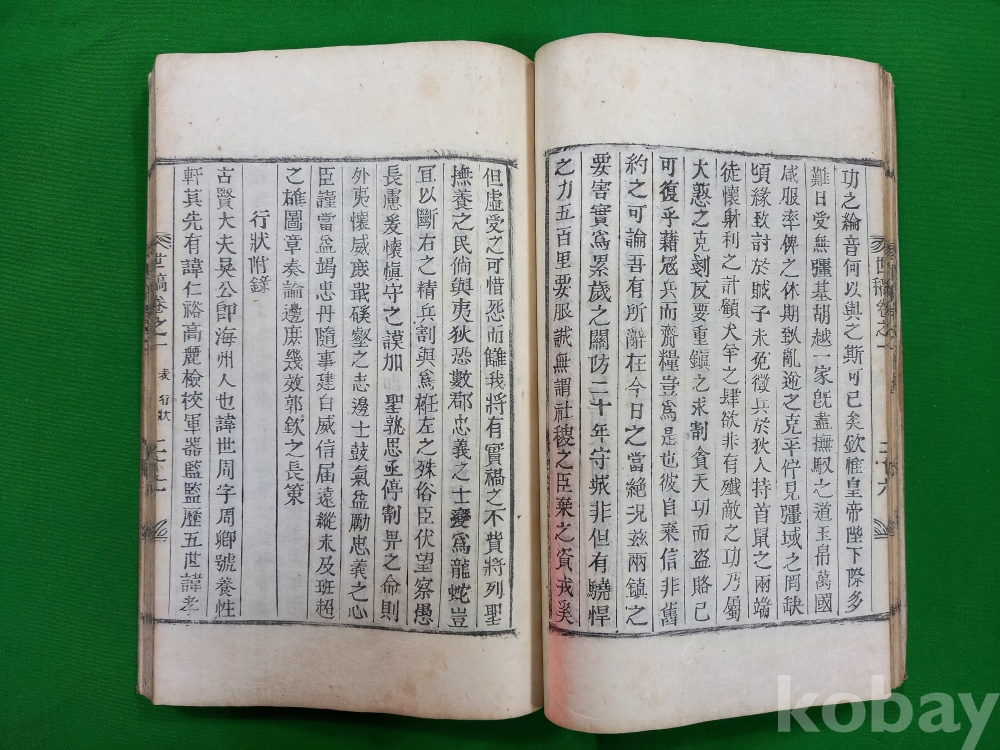 功之綸音何以與之斯可已矣欽惟皇帝陛下際多
難日受無彊基胡越一家旣盡撫馭之道玉帛萬國
咸服率俾之休期致亂逾之克平佇見彊域之罔缺
頃緣致討於賊子未免徵兵於狄人持首鼠之兩端
徒懷射利之計顧犬羊之肆欲非有殲敵之功乃屬
大憝之克剗反要重鎭之求割貪天功而盜賂已
可復乎藉冦兵而齎糧豈爲是也彼自棄信非舊
約之可論吾有所辭在今日之當絶况玆兩鎭之
要害實爲累歲之關防二十年守城非但有驍悍
之力五百里要服誠無謂社稷之臣棄之資戎奚
世稿卷之一
二十六
但虛受之可惜怨而讎我將有實禍之不貲將列聖
撫養之民倘與夷狄恐數郡忠義之士變爲龍蛇豈
宜以斷右之精兵割與爲袵左之殊俗臣伏望察愚
長慮爰懷愼守之謨加 聖執思亟停割畀之命則
外夷懷威庶戢磎壑之志邊士鼓氣益勵忠義之心
臣謹當益竭忠丹隨事建白威信届遠縱未及班超
之雄圖章奏論邊庶幾效郭欽之長策
行狀附錄
古賢大夫吳公卽海州人也諱世周字周卿號養性
軒其先有諱仁裕高麗檢校軍器監監歷五世諱孝
世稿卷之一
行狀
二十七
kobay